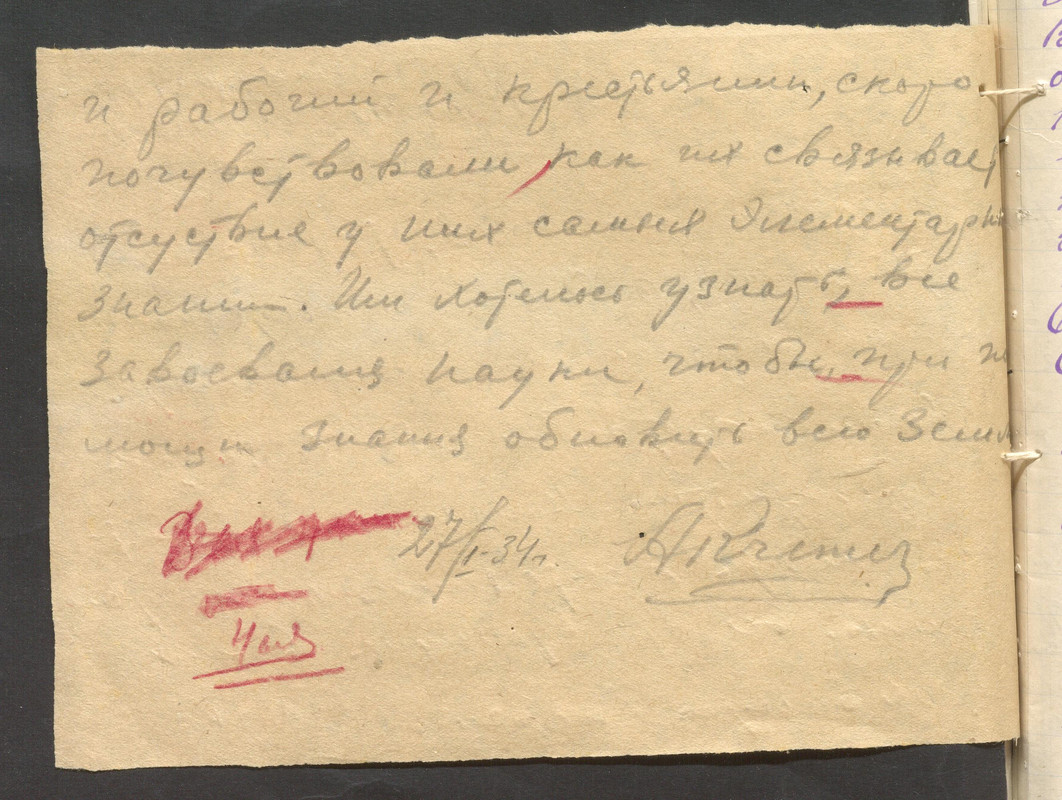 и рабочий и крестьянин, скоро
почувствовали, как их связывает
отсуствие у них самых элементарны
знаний. Им хотелось узнать, все
завоевания науки, чтобы, при по
мощи знания обновить всю Землю
27/I-34г.